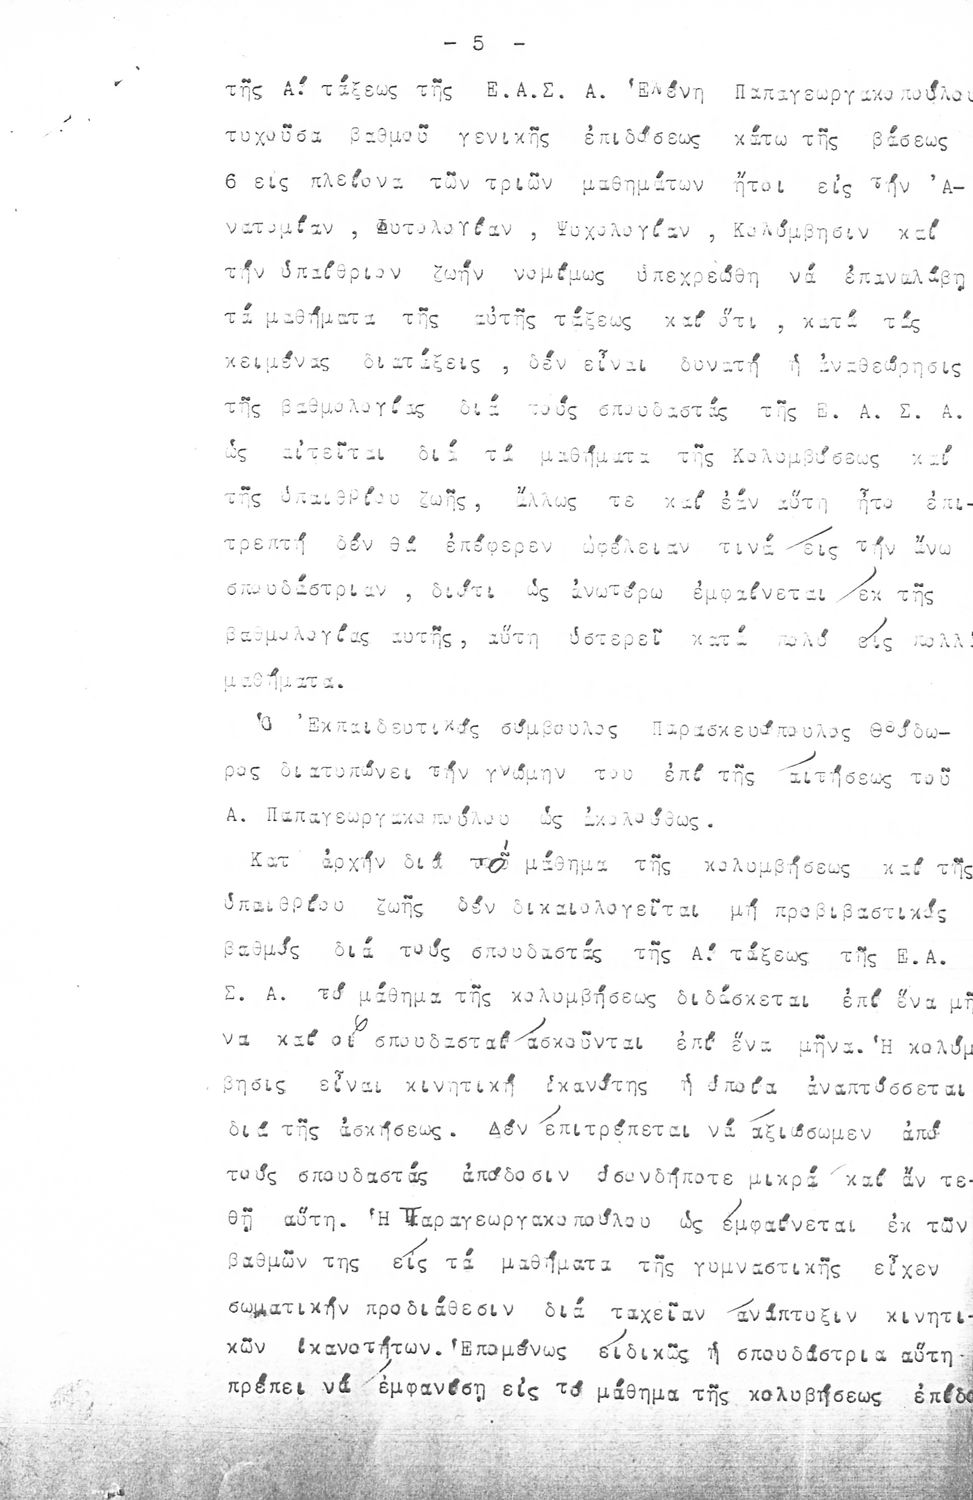 - 5 -
τῆς Α΄. τάξεως τῆς Ε.Α.Σ. Α. Ἑλένη Παπαγεωργακοπούλου
τυχοῦσα βαθμοῦ γενικῆς ἐπιδόσεως κάτω τῆς βάσεως
6 εἰς πλείονα τῶν τριῶν μαθημάτων ἤτοι εἰς τήν Ἀ-
νατομίαν , Φυτολογίαν , Ψυχολογίαν , Κολύμβησιν καί
τήν ὑπαίθριον ζωήν νομίμως ὑπεχρεώθη νά ἐπαναλάβη
τά μαθήματα τῆς αὐτῆς τάξεως καί ὅτι , κατά τάς
κειμένας διατάξεις , δέν εἶναι δυνατή ἡ ἀναθεώρησις
τῆς βαθμολογίας διά τούς σπουδαστάς τῆς Ε. Α. Σ. Α.
ὡς αἰτεῖται διά τά μαθήματα τῆς Κολυμβήσεως καί
τῆς ὑπαιθρίου ζωῆς, ἄλλως τε καί ἐάν αὕτη ἦτο ἐπι-
τρεπτή δέν θά ἐπέφερεν ὠφέλειαν τινά εἰς τήν ἄνω
σπουδάστριαν , διότι ὡς ἀνωτέρω ἐμφαίνεται ἐκ τῆς
βαθμολογίας αυτῆς, αὕτη ὑστερεῖ κατά πολύ εἰς πολλά
μαθήματα.
Ὁ Ἐκπαιδευτικός σύμβουλος Παρασκευόπουλος Θεόδω-
ρος διατυπώνει τήν γνώμην του ἐπί τῆς αἰτήσεως τοῦ
Α. Παπαγεωργακοπούλου ὡς ἀκολούθως.
Κατ ἀρχήν διά τό μάθημα τῆς κολυμβήσεως καί τῆς
ὑπαιθρίου ζωῆς δέν δικαιολογεῖται μή προβιβαστικός
βαθμός διά τούς σπουδαστάς τῆς Α΄. τάξεως τῆς Ε.Α.
Σ. Α. τό μάθημα τῆς κολυμβήσεως διδάσκεται ἐπί ἕνα μῆ
να καί οἱ σπουδασταί ἀσκοῦνται ἐπί ἕνα μῆνα. Ἡ κολύμ
βησις εἶναι κινητική ἱκανότης ἡ ὁποία ἀναπτύσσεται
διά τῆς ἀσκήσεως. Δέν ἐπιτρέπεται νά ἀξιώσωμεν ἀπό
τούς σπουδαστάς ἀπόδοσιν ὁσονδήποτε μικρά καί ἄν τε-
θῇ αὕτη. Ἡ Παραγεωργακοπούλου ὡς ἐμφαίνεται ἐκ τῶν
βαθμῶν της εἰς τά μαθήματα τῆς γυμναστικῆς εἶχεν
σωματικήν προδιάθεσιν διά ταχεῖαν ἀνάπτυξιν κινητι-
κῶν ἱκανοτήτων. Ἑπομένως εἰδικῶς ἡ σπουδάστρια αὕτη
πρέπει νά ἐμφανίση εἰς τό μάθημα τῆς κολυβήσεως ἐπίδο